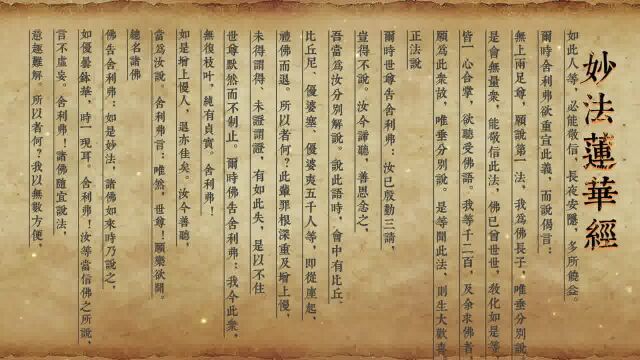 妙法蓮華經
如此人等，必能敬信，長夜安隱，多所饒益。
爾時舍利弗欲重宣此義，而說偈言：
無上兩足尊，願說第一法，我為佛長子，唯垂分別說
是會無量眾，能敬信此法，佛已曾世世，教化如是等
皆一心合掌，欲聽受佛語。我等千二百，及余求佛者，
願為此眾故，唯垂分別說。是等聞此法，則生大歡喜
正法說
爾時世尊告舍利弗：汝已殷勤三請，
豈得不說。汝今諦聽，善思念之，
吾當為汝分別解說。說此語時，會中有比丘、
比丘尼、優婆塞、優婆夷五千人等，即從座起，
禮佛而退。所以者何？此輩罪根深重及增上慢，
未得謂得、未證謂證，有如此失，是以不住
世尊默然而不制止。爾時佛告舍利弗：我今此眾，
無復枝葉，純有貞實。舍利弗！
如是增上慢人，退亦佳矣。汝今善聽，
當為汝說。舍利弗言：唯然，世尊！願樂欲聞。
總名諸佛
佛告舍利弗：如是妙法，諸佛如來時乃說之，
如優曇鉢華，時一現耳。舍利弗！汝等當信佛之所說，
言不虛妄。舍利弗！諸佛隨宜說法，
意趣難解。所以者何？我以無數方便，